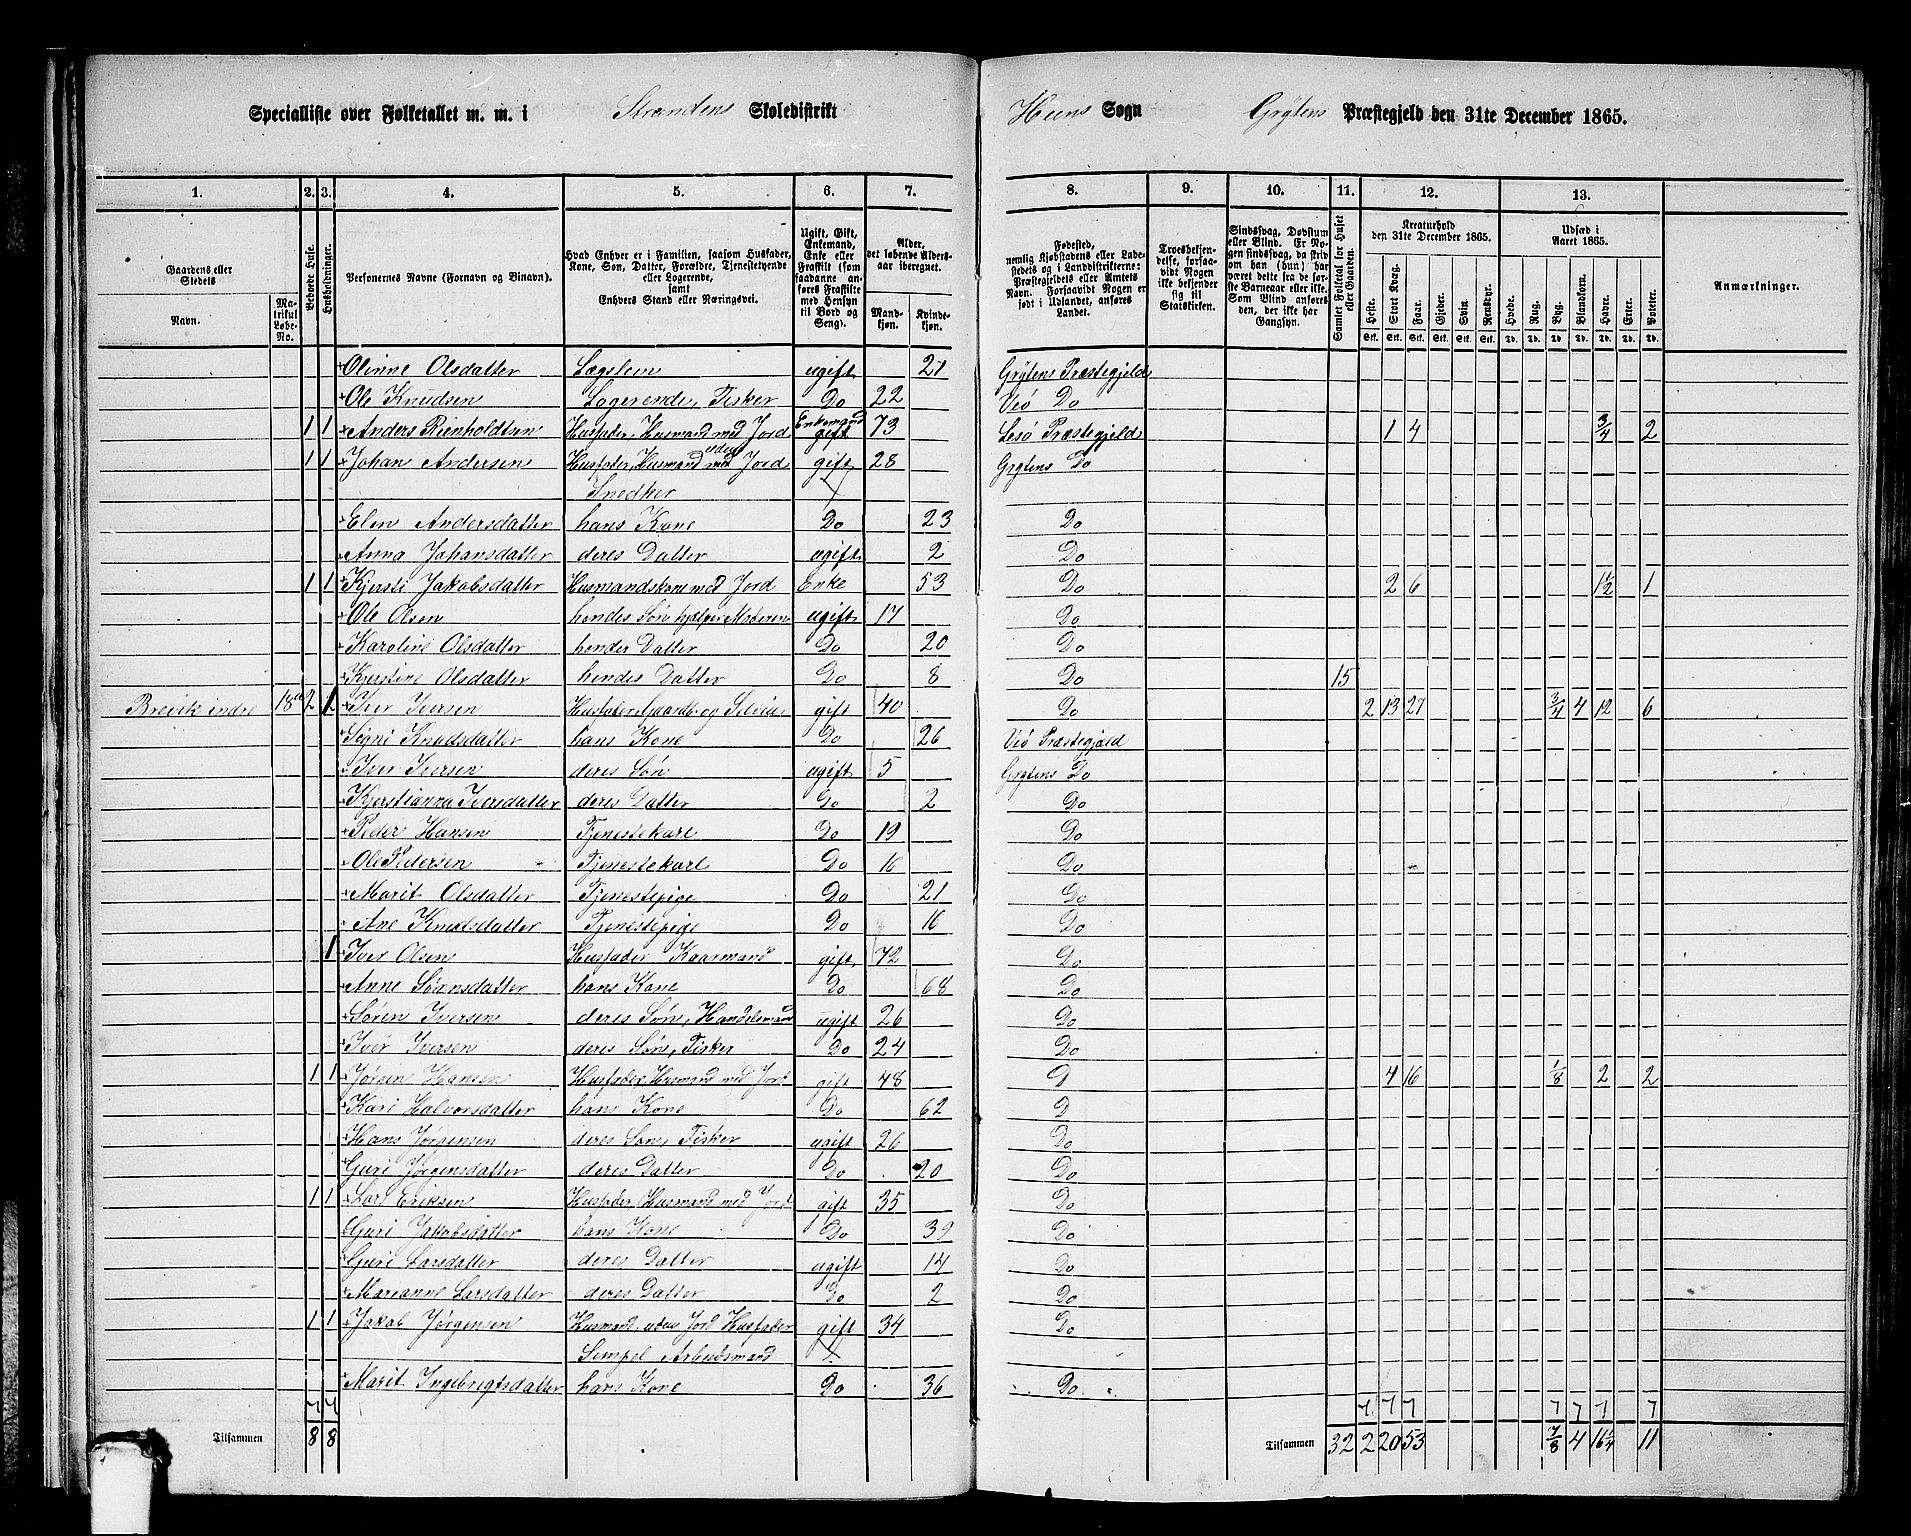 Specialliste over Folketallet m. m. i Strandens Skoledistrikt Heens Sogn Grytens Præstegjeld den 31te December 1865.
1. 2. 3. 4. 5. 6. 7. 8. 9. 10. 11. 12. 13.
Gaardens eller Stedets Navn. Matrikul Løbe-No.
Beboede Huse. Husholdninger.
Personernes Navne (Fornavn og Binavn).
Hvad Enhver er i Familien, saasom Husfader, Kone, Søn, Datter, Forældre, Tjenestetyende eller Logerende, samt Enhvers Stand eller Næringsvei.
Ugift, Gift, Enkemand, Enke eller Fraskilt (som saadanne anføres Fraskilte med Hensyn til Bord og Seng).
Alder, det løbende Aldersaar iberegnet. Mandkjøn. Kvindekjøn.
Fødested, nemlig Kjøbstadens eller Ladestedets og i Landdistrikterne: Præstegjeldets eller Amtets Navn. Forsaavidt Nogen er født i Udlandet, anføres Landet.
Troesbekjendelse, forsaavidt Nogen ikke bekjender sig til Statskirken.
Sindssvag, Døvstum eller Blind. Er Nogen sindssvag, da skriv om han (hun) har været dette fra de første Barneaar eller ikke. Som Blind anføres den, der ikke har Gangsyn.
Samlet Folketal for Huset eller Gaarden.
Kreaturhold den 31te December 1865. Heste. Stort Kvæg. Faar. Gjeder. Svin. Rensdyr.
Udsæd i Aaret 1865. Hvede. Rug. Byg. Blandkorn. Havre. Erter. Poteter.
Anmærkninger.
Olinne Olsdatter Lægslem ugift 21 Grytens Præstegjeld
Ole Knudsen Logerende, Fisker Do 22 Veø Do
1 1 Anders Rienholdtsen Husfader, Husmand med Jord Enkemand gift 73 Lesø Præstegjeld 1 4 3/4 2
1 1 Johan Andersen Husfader, Husmand med uden Jord gift 28 Grytens Do
Snedker
Elen Andersdatter hans Kone Do 23 Do
Anna Johansdatter deres Datter ugift 2 Do
1 1 Kjersti Jakobsdatter Husmandskone med Jord Enke 53 Do 2 6 1 1/2 1
Ole Olsen hendes Søn hjelper Moderen ugift 17 Do
Karoline Olsdatter hendes Datter Do 20 Do
Kjerstine Olsdatter hendes Datter Do 8 Do 15
Breivik indre 18a 2 1 Iver Iversen Husfader, Gaardb. og Selveier gift 40 Do 2 13 27 3/4 4 12 6
Signi Knudsdatter hans Kone Do 26 Veø Præstegjeld
Iver Iversen deres Søn ugift 5 Grytens Do
Kjerstianna Iversdatter deres Datter Do 2 Do
Peder Hansen Tjenestekarl Do 19 Do
Ole Pedersen Tjenestekarl Do 16 Do
Marit Olsdatter Tjenestepige Do 21 Do
Ane Knudsdatter Tjenestepige Do 16 Do
1 Iver Olsen Husfader Kaarmand gift 72 Do
Anne Sørensdatter hans Kone Do 68 Do
Søren Iversen deres Søn, Handelsmand ugift 26 Do
Iver Iversen deres Søn, Fisker Do 24 Do
1 1 Jørgen Hansen Husfader, Husmand med Jord gift 48 D 4 16 1/8 2 2
Kari Halvorsdatter hans Kone Do 62 D
Hans Jørgensen deres Søn, Fisker ugift 26 Do
Guri Jørgensdatter deres Datter Do 20 Do
1 1 Lars Eriksen Husfader, Husmand med Jord gift 35 Do
Guri Jakobsdatter hans Kone Do 39 Do
Guri Larsdatter deres Datter ugift 14 Do
Marianne Larsdatter deres Datter Do 2 Do
1 1 Jakob Jørgensen Husmand uden Jord Husfader gift 34 Do
Simpel Arbeidsmand
Marit Ingebrigtsdatter hans Kone Do 36 Do
Tilsammen 8 8 Tilsammen 32 2 20 53 7/8 4 16 1/4 11